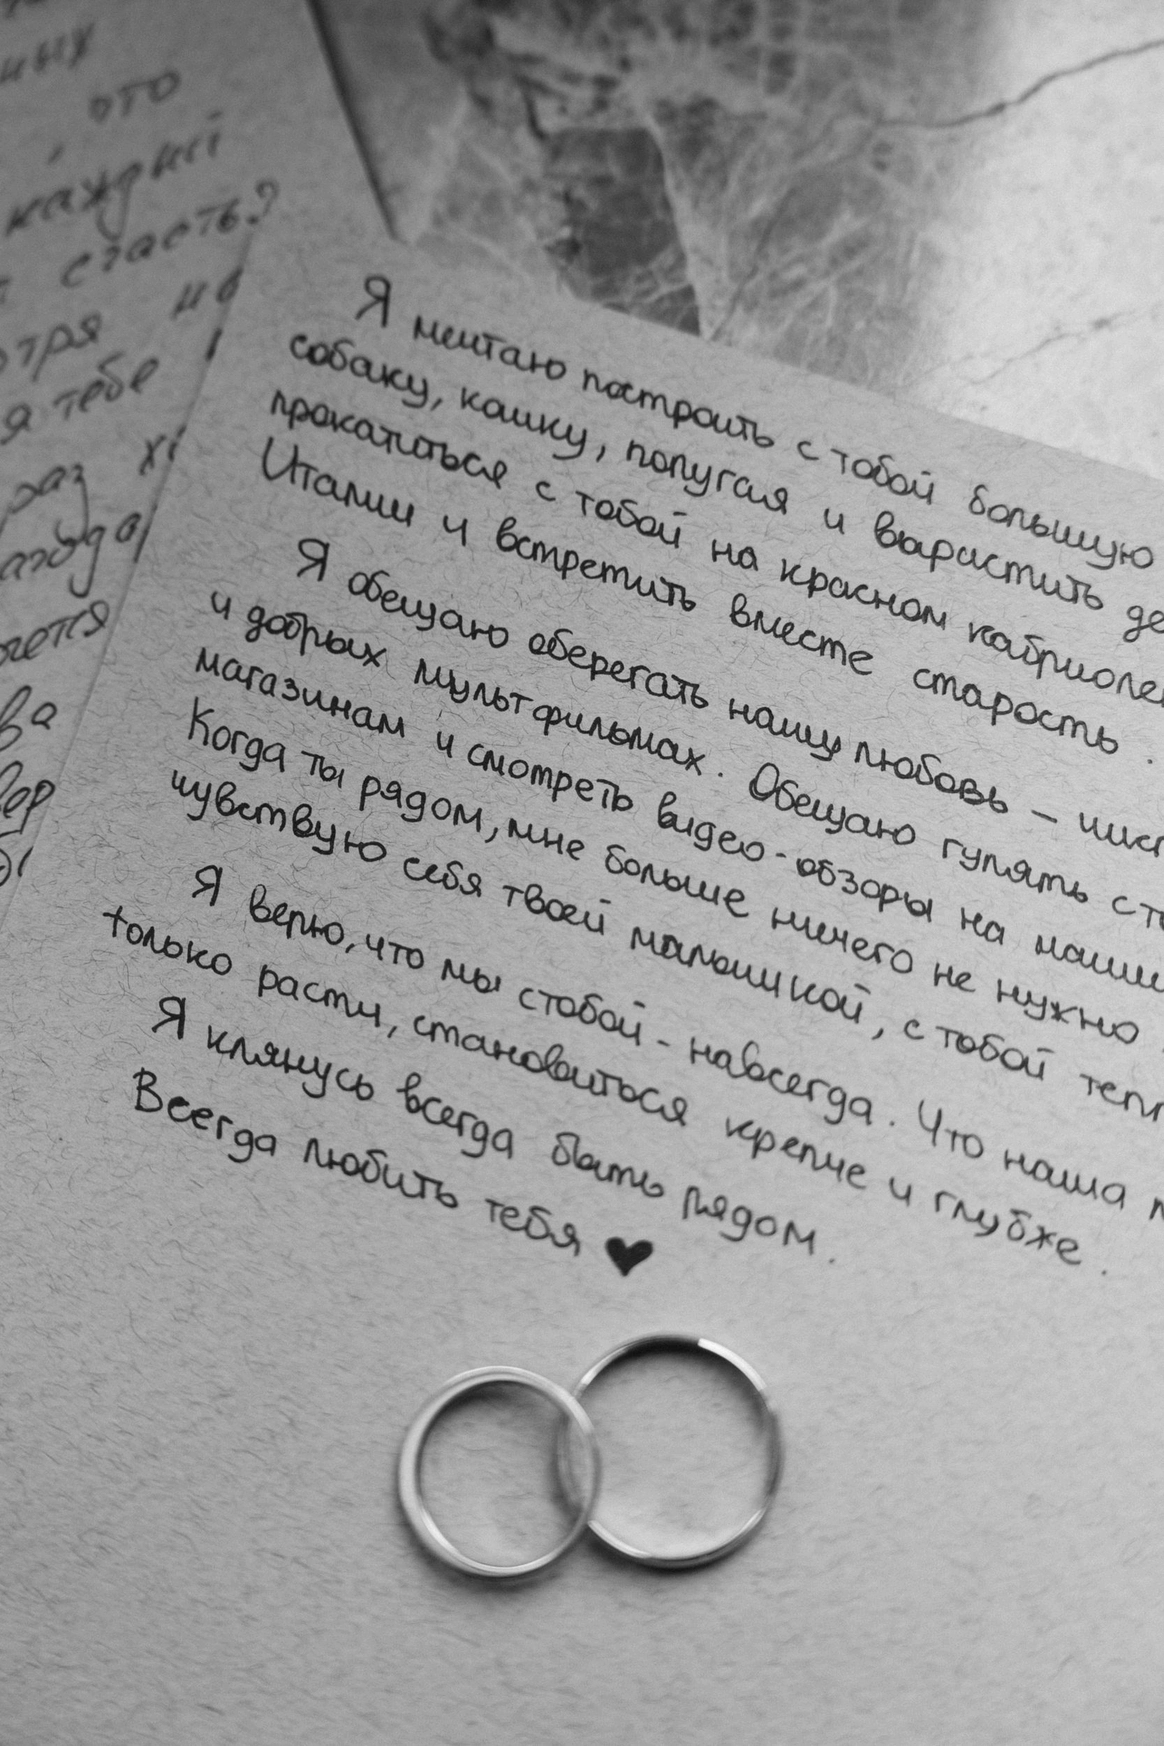 ину
, что
каждый
счасть?
на
отря
я тебе
раз
Я мечтаю построить с тобой большую
собаку, кошку, попугая и вырастить де
прокатиться с тобой на красном кабриоле
Италии и встретить вместе старость.
Я обещаю оберегать нашу любовь – чист
и добрых мультфильмах. Обещаю гулять с то
магазинам и смотреть видео-обзоры на маши
Когда ты рядом, мне больше ничего не нужно
чувствую себя твоей малышкой, с тобой тепл
Я верю, что мы с тобой - навсегда. Что наша
только расти, становиться крепче и глубже.
Я клянусь всегда быть рядом.
Всегда любить тебя ♥